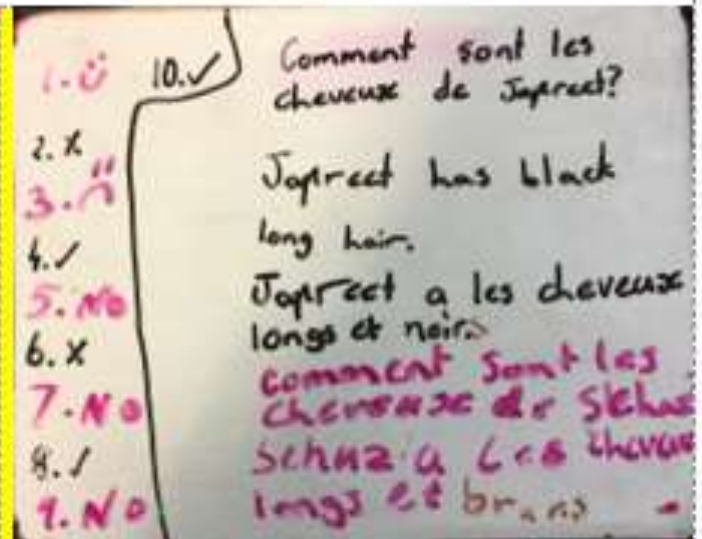 1. ಠ
10. ✓
2. x
3.
4. ✓
5. No
6. x
7. No
8. ✓
9. No
Comment sont les
cheveux de Japreet?
Japreet has black
long hair.
Japreet a les cheveux
longs et noirs
comment sont les
cheveux de
a les cheveux
longs et bruns